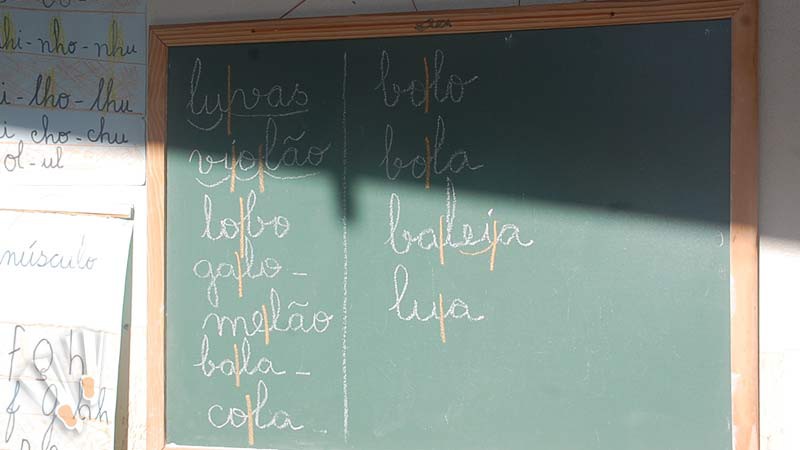 hi - nho - nhu
i - lho - lhu
i cho - chu
ol - ul
núsculo
f g h
f g hh
lu|vas
vi|o|lão
lo|bo
ga|lo -
me|lão
ba|la -
co|la
bo|lo
bo|la
ba|lei|a
lu|a